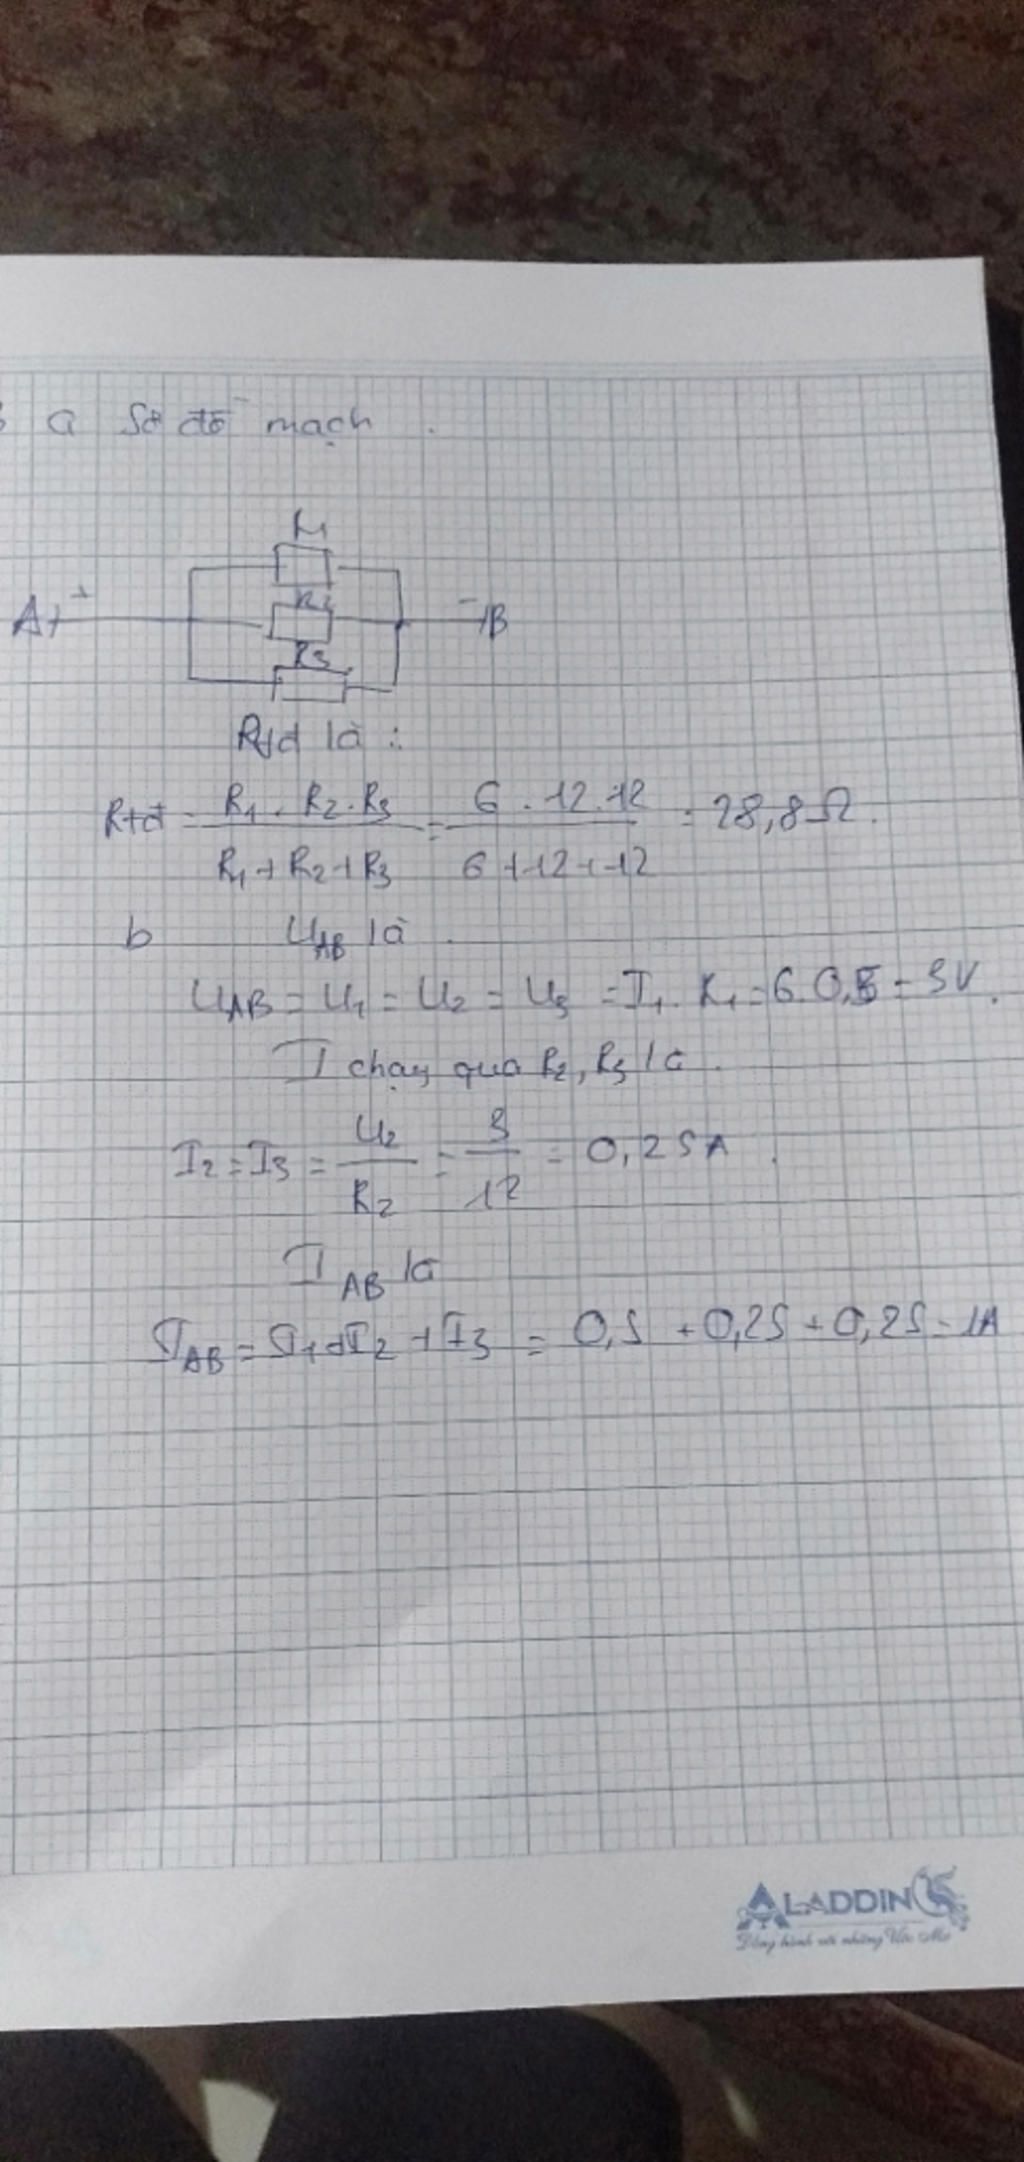 a Sơ đồ mạch.
R1
A + R2 - B
R3
Rtđ là :
Rtđ = R1 . R2 . R3 / R1 + R2 + R3 = 6 . 12 . 12 / 6 + 12 + 12 = 28,8 Ω.
b UAB là.
UAB = U1 = U2 = U3 = I1 . R1 = 6. 0,5 = 3V.
I chạy qua R2, R3 là.
I2 = I3 = U2 / R2 = 3 / 12 = 0,25A.
IAB là
IAB = I1 + I2 + I3 = 0,5 + 0,25 + 0,25 = 1A
ALADDIN
Đồng hành với những Ước Mơ